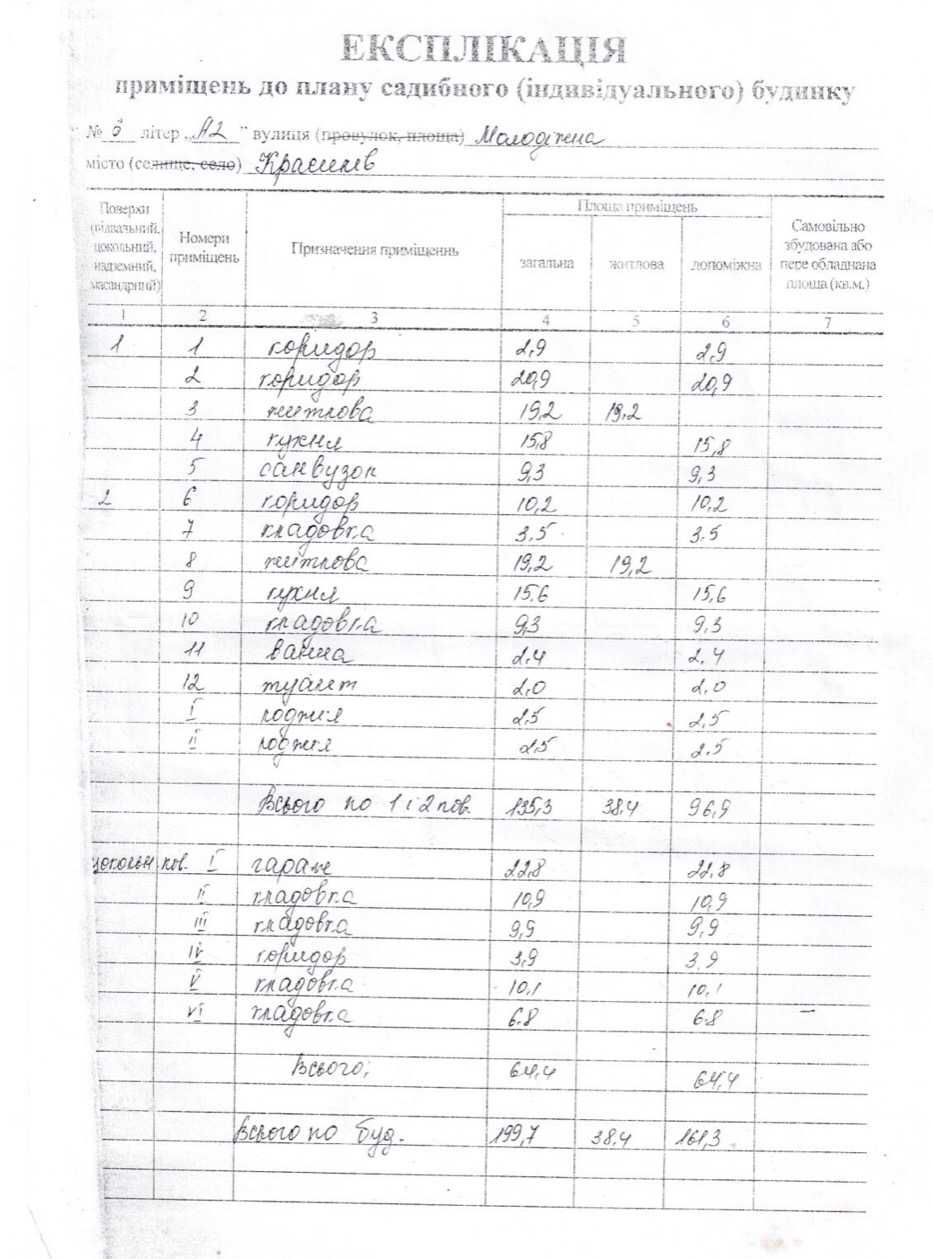 ЕКСПЛІКАЦІЯ
приміщень до плану садибного (індивідуального) будинку
№ 5 літер „А2" вулиця (провулок, площа) Молодіжна
місто (селище, село) Красилів
Поверхи (підвальний, цокольний, надземний, мансардний) Номери приміщень Призначення приміщеннь Площа приміщень Самовільно збудована або пере обладнана площа (кв.м.)
загальна житлова допоміжна
1 2 3 4 5 6 7
1 1 коридор 2,9 2,9
2 коридор 20,9 20,9
3 житлова 19,2 19,2
4 кухня 15,8 15,8
5 санвузол 9,3 9,3
2 6 коридор 10,2 10,2
7 кладовка 3.5 3.5
8 житлова 19,2 19,2
9 кухня 15,6 15,6
10 кладовка 9,3 9,3
11 ванна 2,4 2,4
12 туалет 2,0 2,0
I лоджия 2,5 2,5
II лоджия 2,5 2.5
Всього по 1 і 2 пов. 135,3 38.4 96,9
цокольн. пов. I гараж 22,8 22,8
II кладовка 10,9 10,9
III кладовка 9,9 9,9
IV коридор 3,9 3,9
V кладовка 10,1 10,1
VI кладовка 6.8 6.8
Всього: 64,4 64,4
Всього по буд. 199,7 38.4 161,3